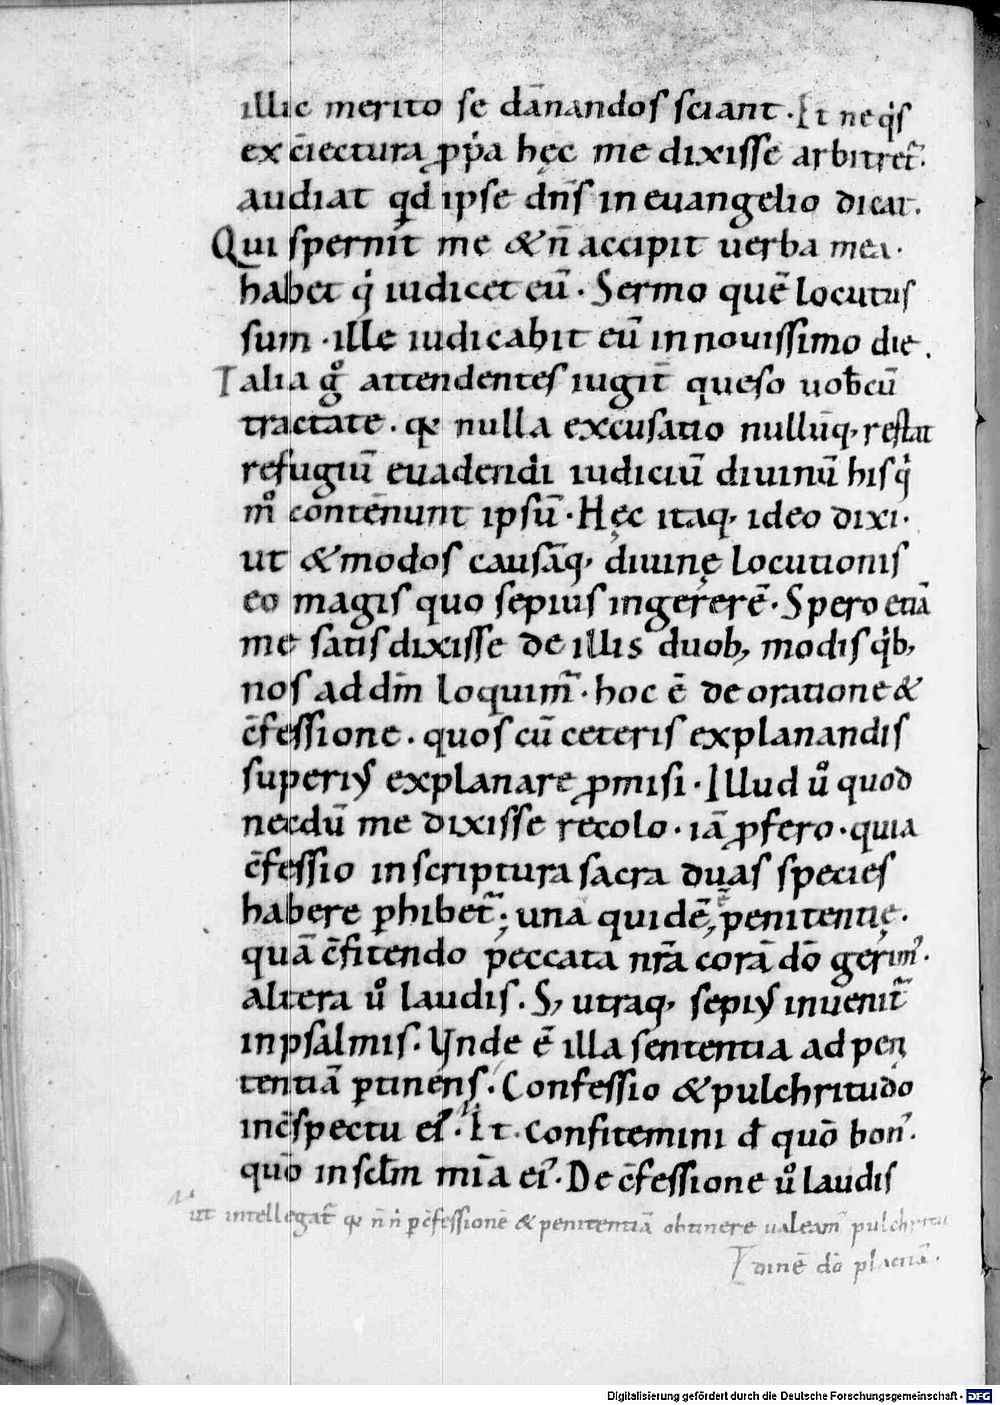 illic merito se dānandos sciant. Et neq̇s
ex c̄iectura ꝓp̄a hęc me dixisse arbitret̄.
audiat qd̄ ipse dn̄s in euangelio dicat.
Qui spernit me & n̄ accipit uerba mea.
habet q̇ iudicet eū. Sermo quē locutus
sum. ille iudicabit eū in nouissimo die.
Talia g̊ attendentes iugit̄ queso uob̄cū
tractate. qꝛ nulla excusatio nullūq; restat
refugiū euadendi iudiciū diuinū his q̇
m̊ contēnunt ipsū. Hęc itaq; ideo dixi.
ut & modos causāq; diuinę locutionis
eo magis quo sepius ingererē. Spero etiā
me satis dixisse de illis duob; modis q̇b;
nos ad dm̄ loquim̄. hoc ē de oratione &
c̄fessione. quos cū ceteris explanandis
superiꝰ explanare ꝓmisi. Illud ů quod
necdū me dixisse recolo. iā ꝓfero. quia
c̄fessio in scriptura sacra duas species
habere ꝑhibet̄; unā quidē penitentię.
quā c̄fitendo peccata nr̄a corā dō gerim᾽.
altera ů laudis. S; utraq; sepiꝰ inuenit̄
in psalmis. Vnde ē illa sententia ad peni
tentiā ꝑtinens. Confessio & pulchritudo
in c̄spectu ei᾽. Et. Confitemini d̄ quō bon᾽.
quō in sc̄lm̄ mīa ei᾽. De c̄fessione ů laudis
ut intellegat̄ qꝛ n̄ n̄ ꝑ c̄fessionē & penitentiā obtinere ualeam᾽ pulchritu
dinē dō placitā.